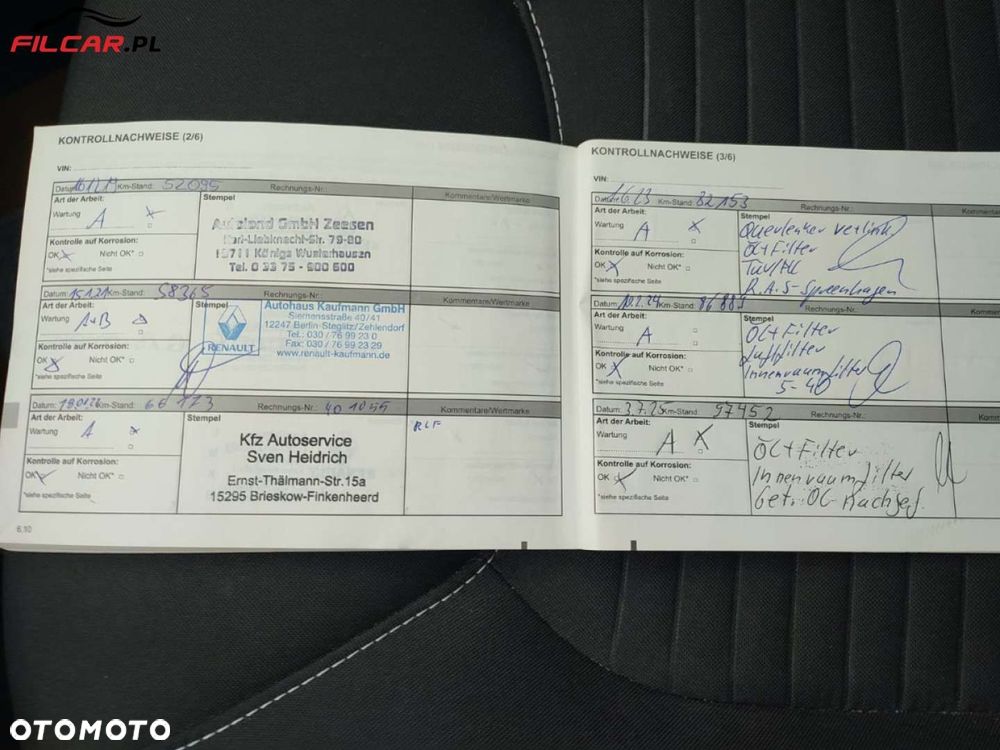 FILCAR.PL
KONTROLLNACHWEISE (2/6)
VIN:
Datum: Km-Stand: 52095 Rechnungs-Nr.:
Kommentare/Wertmarke
Art der Arbeit:
Stempel
Wartung A
Autoland GmbH Zeesen
Karl-Liebknecht-Str. 79-80
15711 Königs Wusterhausen
Tel. 0 33 75 - 900 600
Kontrolle auf Korrosion:
OK Nicht OK*
*siehe spezifische Seite
Datum: 15.1.21 Km-Stand: 58365 Rechnungs-Nr.:
Kommentare/Wertmarke
Art der Arbeit:
Stempel
Wartung A+B
RENAULT
Autohaus Kaufmann GmbH
Siemensstraße 40/41
12247 Berlin-Steglitz/Zehlendorf
Tel.: 030 / 76 99 23 0
Fax: 030 / 76 99 23 29
www.renault-kaufmann.de
Kontrolle auf Korrosion:
OK Nicht OK*
*siehe spezifische Seite
Datum: Km-Stand: 66173 Rechnungs-Nr.: 401055
Kommentare/Wertmarke
Art der Arbeit:
Stempel
Wartung A
RLF
Kfz Autoservice
Sven Heidrich
Ernst-Thälmann-Str.15a
15295 Brieskow-Finkenheerd
Kontrolle auf Korrosion:
OK Nicht OK*
*siehe spezifische Seite
6.10
KONTROLLNACHWEISE (3/6)
VIN:
Datum: Km-Stand: 82153 Rechnungs-Nr.:
Art der Arbeit:
Stempel
Wartung A
Querlenker
Öl+Filter
R.A.S-Spreenhagen
Kontrolle auf Korrosion:
OK Nicht OK*
*siehe spezifische Seite
Datum: 10.2.24 Km-Stand: Rechnungs-Nr.:
Art der Arbeit:
Stempel
Wartung A
Öl+Filter
Luftfilter
Innenraumfilter
5-40
Kontrolle auf Korrosion:
OK Nicht OK*
*siehe spezifische Seite
Datum: 3.7.25 Km-Stand: 97452 Rechnungs-Nr.:
Art der Arbeit:
Stempel
Wartung A
Öl+Filter
Innenraumfilter
Kontrolle auf Korrosion:
OK Nicht OK*
*siehe spezifische Seite
OTOMOTO